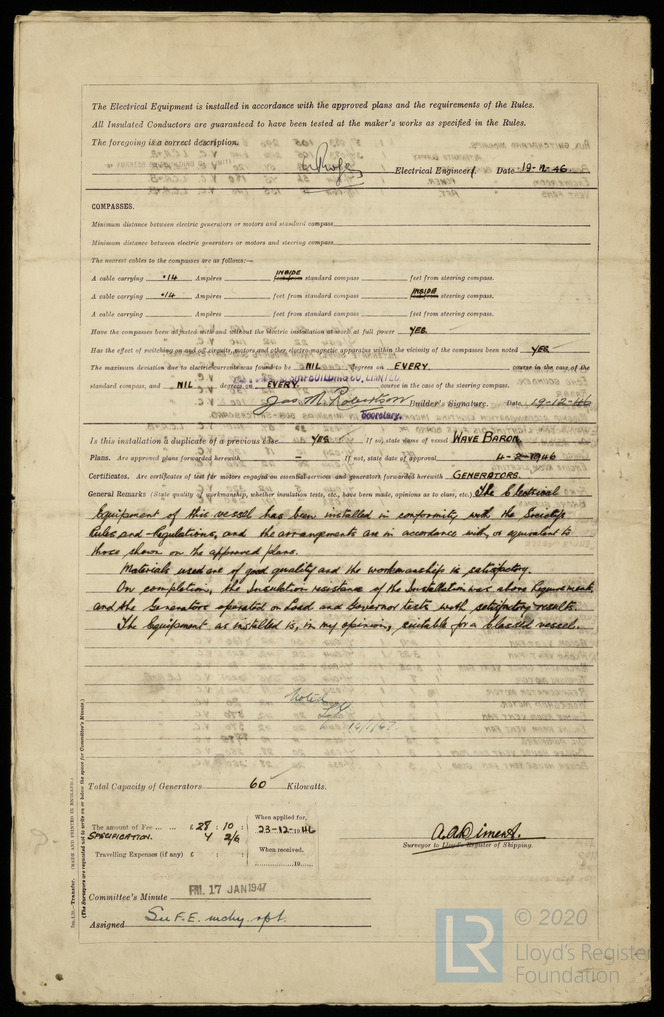 The Electrical Equipment is installed in accordance with the approved plans and the requirements of the Rules.
All Insulated Conductors are guaranteed to have been tested at the maker's works as specified in the Rules.
The foregoing is a correct description.
Electrical Engineers. Date 19-12-46.
COMPASSES.
Minimum distance between electric generators or motors and standard compass
Minimum distance between electric generators or motors and steering compass
The nearest cables to the compasses are as follows:—
A cable carrying .14 Ampères INSIDE feet from standard compass feet from steering compass.
A cable carrying .14 Ampères feet from standard compass INSIDE feet from steering compass.
A cable carrying Ampères feet from standard compass feet from steering compass.
Have the compasses been adjusted with and without the electric installation at work at full power YES.
Has the effect of switching on and off circuits, motors and other electro-magnetic apparatus within the vicinity of the compasses been noted YES
The maximum deviation due to electric currents was found to be NIL degrees on EVERY. course in the case of the
standard compass, and NIL degrees on EVERY. course in the case of the steering compass.
SHIPBUILDING CO. LIMITED.
Jas. M. Robertson Builder's Signature. Date 19-12-46
Secretary.
Is this installation a duplicate of a previous case YES If so, state name of vessel WAVE BARON.
Plans. Are approved plans forwarded herewith — If not, state date of approval 4-2-1946
Certificates. Are certificates of test for motors engaged on essential services and generators forwarded herewith GENERATORS.
General Remarks (State quality of workmanship, whether insulation tests, etc., have been made, opinions as to class, etc.) The Electrical
Equipment of this vessel has been installed in conformity with the Society's
Rules and Regulations, and the arrangements are in accordance with, or equivalent to
those, shown on the approved plans.
Materials used are of good quality and the workmanship is satisfactory.
On completion, the Insulation resistance of the Installation was above Requirements,
and the Generators operated on Load and Governor tests with satisfactory results.
The Equipment as installed is, in my opinion, suitable for a classed vessel.
Noted
14/1/47
Total Capacity of Generators 60 Kilowatts.
The amount of Fee ... ... £ 28 : 10 :
SPECIFICATION. 4 2/6
When applied for,
23-12-1946
Travelling Expenses (if any) £ : :
When received,
19
A.A. Diment.
Surveyor to Lloyd's Register of Shipping.
Committee's Minute FRI. 17 JAN 1947
Assigned See F.E. mchy. rpt.
Transfer. (MADE AND PRINTED IN ENGLAND.)
(The Surveyors are requested not to write on or below the space for Committee's Minute.)
LR © 2020
Lloyd's Register
Foundation